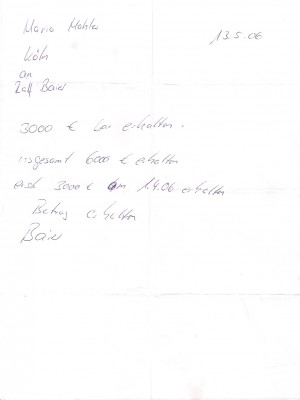 13.5.06
Mario
Köln
an
Ralf Baier
3000 € bei erhalten.
insgesamt 6000 € erhalten
erst 3000 € am 1.4.06 erhalten
Betrag erhalten
Baier